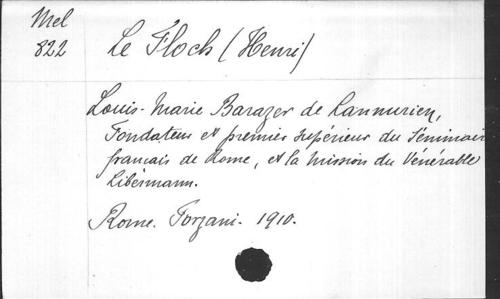 Mel
822
Le Floch (Henri)
Louis-Marie Barazer de Lannurien,
Fondateur et premier supérieur du Séminaire
français de Rome, et la mission du Vénérable
Libermann.
Rome. Forzani. 1910.